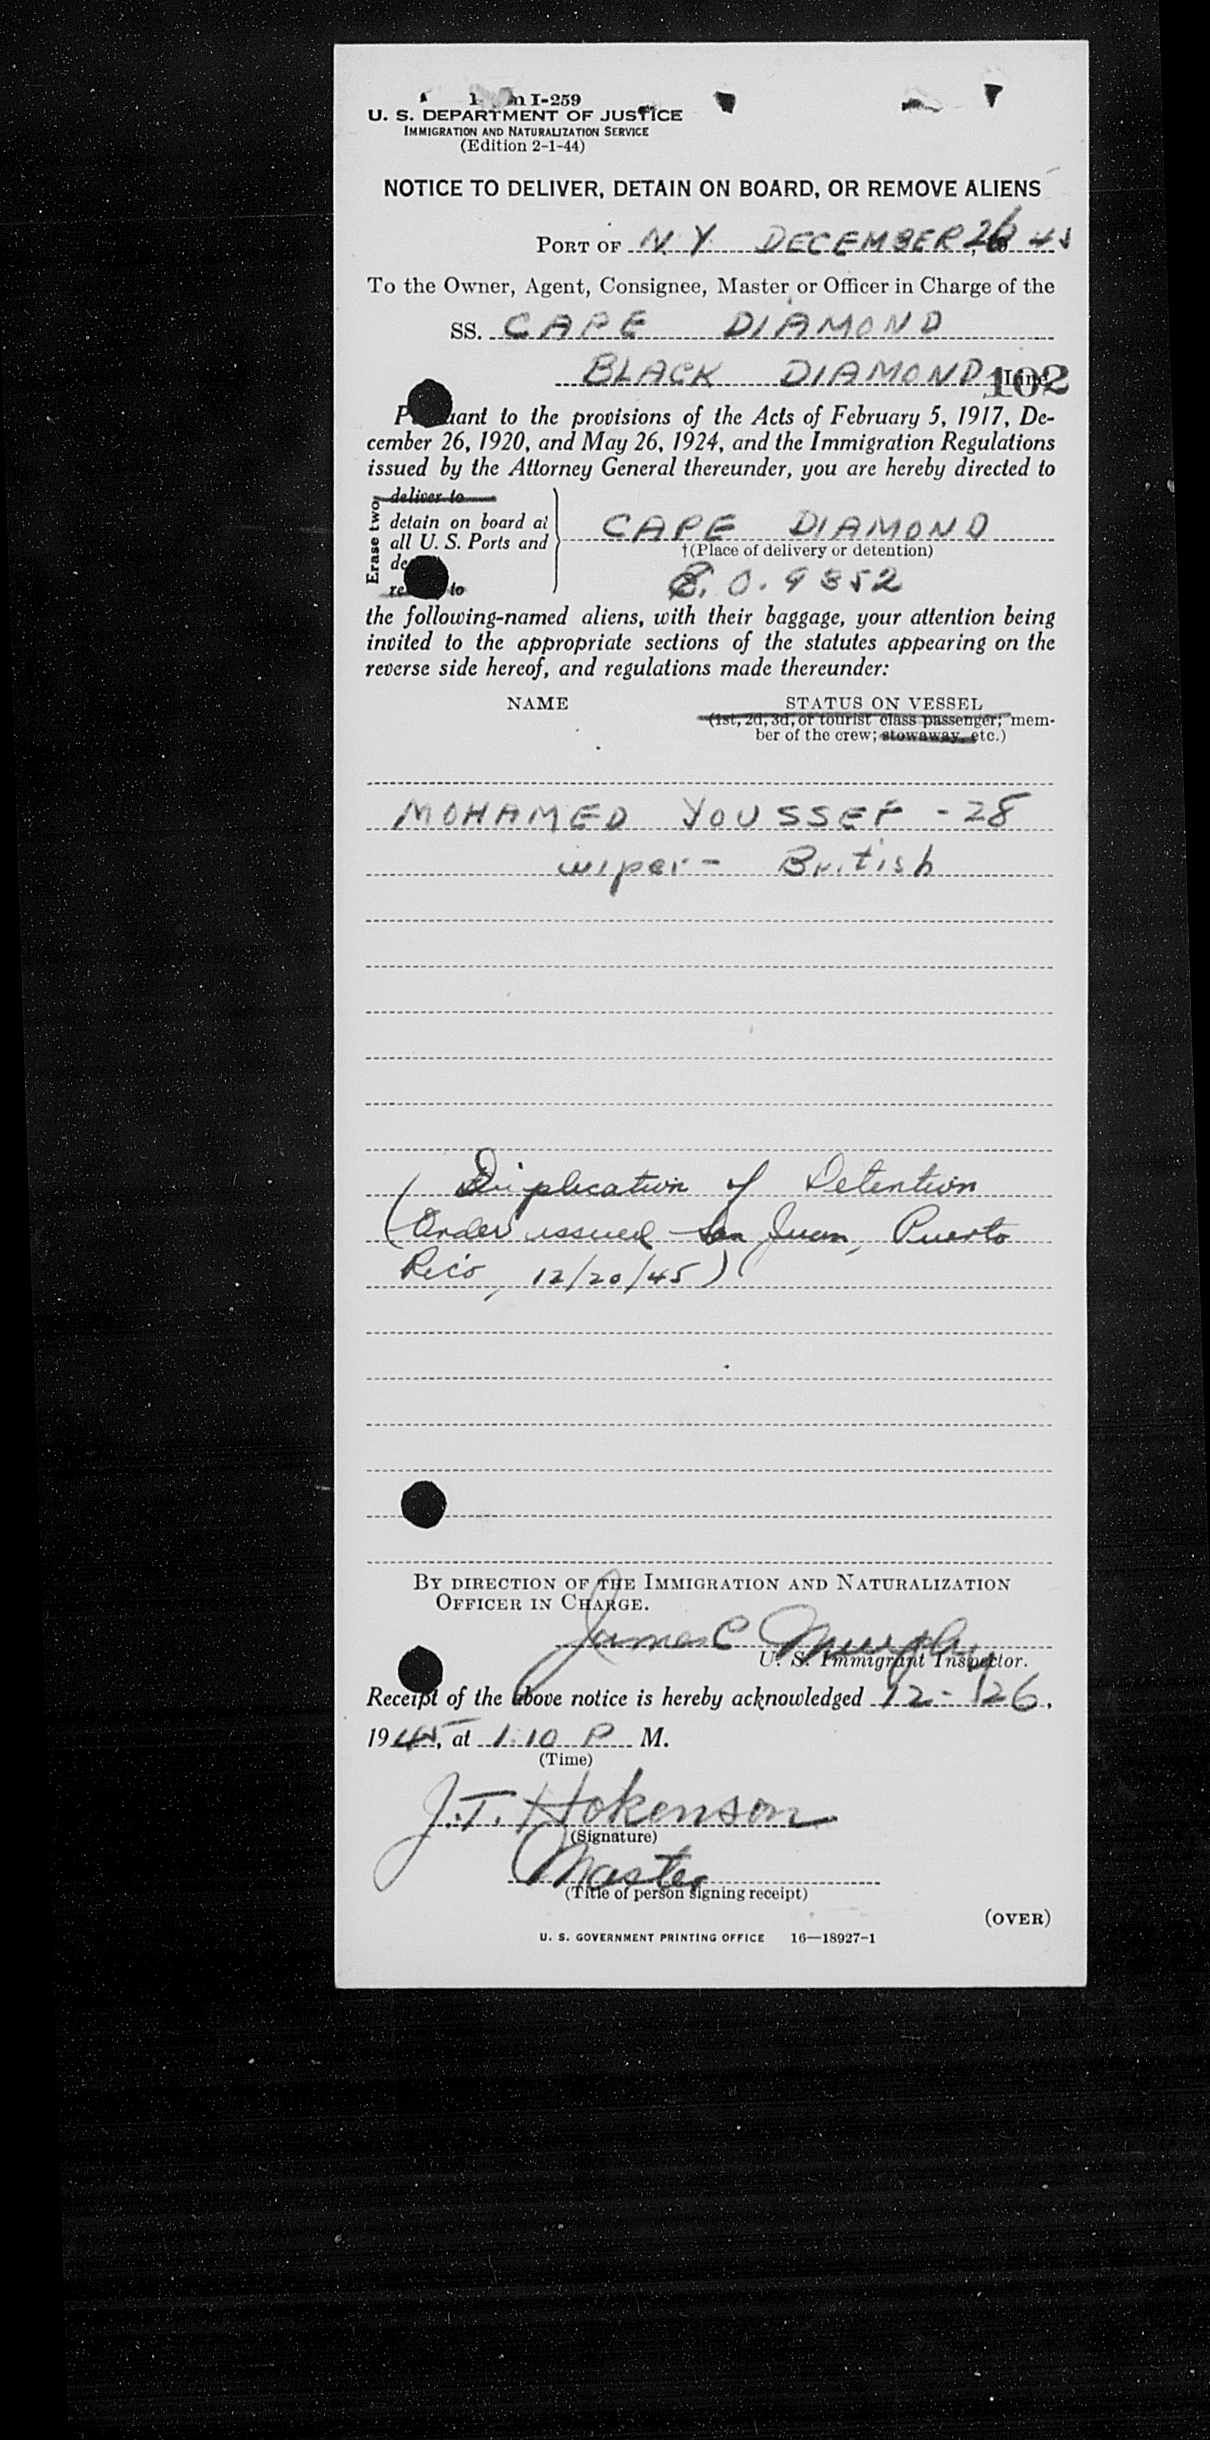 Form I-259
U. S. DEPARTMENT OF JUSTICE
IMMIGRATION AND NATURALIZATION SERVICE
(Edition 2-1-44)
NOTICE TO DELIVER, DETAIN ON BOARD, OR REMOVE ALIENS
PORT OF N.Y. DECEMBER 26, 1945
To the Owner, Agent, Consignee, Master or Officer in Charge of the
SS. CAPE DIAMOND
BLACK DIAMOND Line
102
Pursuant to the provisions of the Acts of February 5, 1917, De-
cember 26, 1920, and May 26, 1924, and the Immigration Regulations
issued by the Attorney General thereunder, you are hereby directed to
Erase two
deliver to
detain on board at
all U. S. Ports and
to
CAPE DIAMOND
†(Place of delivery or detention)
E.O. 9352
the following-named aliens, with their baggage, your attention being
invited to the appropriate sections of the statutes appearing on the
reverse side hereof, and regulations made thereunder:
NAME STATUS ON VESSEL
(1st, 2d, 3d, or tourist class passenger; mem-
ber of the crew; stowaway, etc.)
MOHAMED YOUSSEF - 28
wiper - British
(Duplication of Detention
Order issued San Juan, Puerto
Rico, 12/20/45)
BY DIRECTION OF THE IMMIGRATION AND NATURALIZATION
OFFICER IN CHARGE.
James C Murphy
U. S. Immigrant Inspector.
Receipt of the above notice is hereby acknowledged 12-26,
1945, at 1:10 P M.
(Time)
J.T. Hokenson
(Signature)
Master
(Title of person signing receipt)
(OVER)
U. S. GOVERNMENT PRINTING OFFICE 16—18927-1